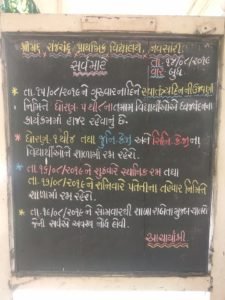 શ્રીમદ્ રાજચંદ્ર પ્રાથમિક વિદ્યાલય, નવસારી
સર્વ માટે
તા. ૧૪/૦૮/૨૦૧૯
વાર: બુધ
* તા. ૧૫/૦૮/૨૦૧૯ ને ગુરુવારનાં દિને સ્વાતંત્ર્યદિનની ઉજવણી
નિમિત્તે ધોરણ: ૫ થી ૮ નાં તમામ વિદ્યાર્થીઓએ ધ્વજવંદનના
કાર્યક્રમમાં હાજર રહેવાનું છે.
* ધોરણ: ૧ થી ૪ તથા જુનિ. કેજી અને સિનિ. કેજીના
વિદ્યાર્થીઓને શાળામાં રજા રહેશે.
* તા. ૧૬/૦૮/૨૦૧૯ ને શુક્રવારે સ્થાનિક રજા તથા
તા. ૧૭/૦૮/૨૦૧૯ ને શનિવારે પતેતીના તહેવાર નિમિત્તે
શાળામાં રજા રહેશે.
* તા. ૧૯/૦૮/૨૦૧૯ ને સોમવારથી શાળા રાબેતા મુજબ ચાલશે
જેની સર્વએ અવશ્ય નોંધ લેવી.
આચાર્યાશ્રી